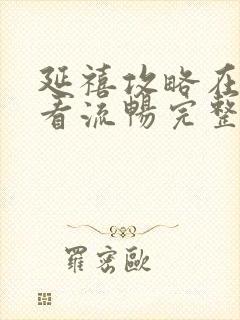 延禧攻略在
看流暢完整
羅密歐